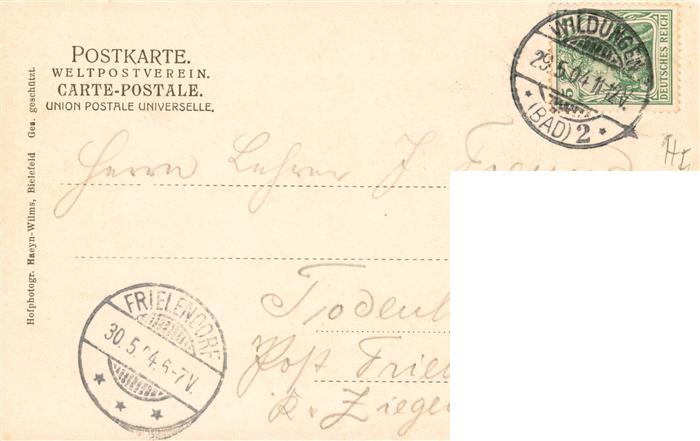 POSTKARTE.
WELTPOSTVEREIN.
CARTE-POSTALE.
UNION POSTALE UNIVERSELLE.
Hofphotogr. Haeyn-Wilms, Bielefeld Ges. geschützt.
WILDUNGEN
29.5.04.11-12V.
(BAD) 2
DEUTSCHES REICH
Herrn Lehrer J.
Post
FRIELENDORF
30.5.04.6-7V.